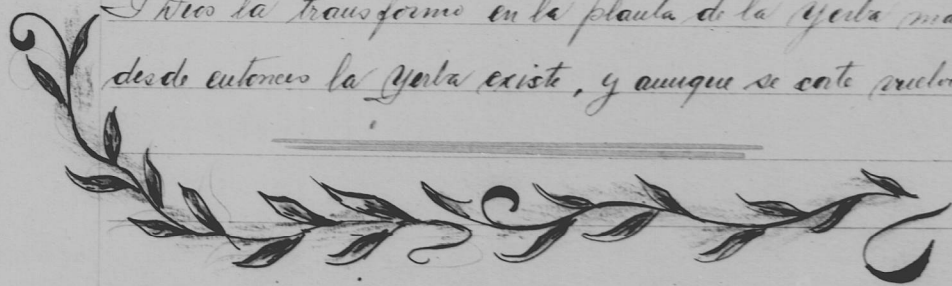 I Dios la transformo en la planta de la yerba ma
desde entonces la Yerba existe, y aunque se corte vuelv